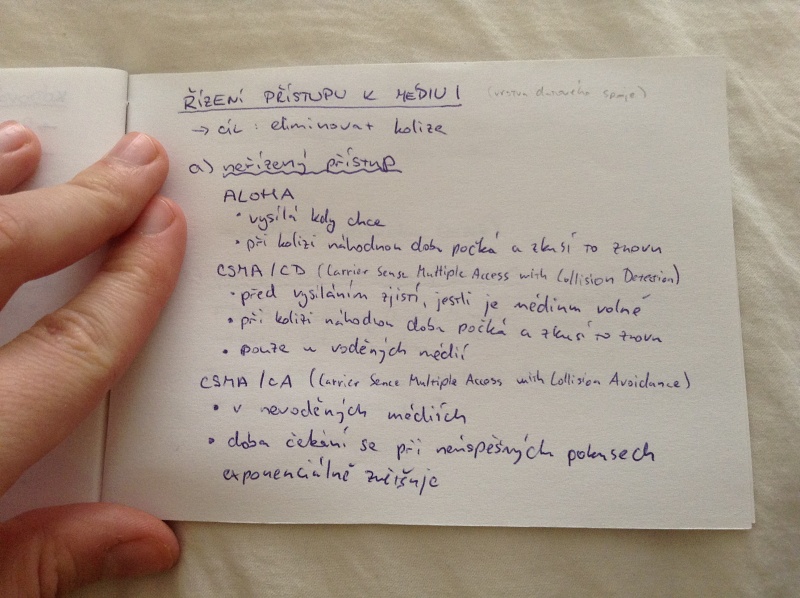 ŘÍZENÍ PŘÍSTUPU K MÉDIU I (vrstva datového spoje)
→ cíl: eliminovat kolize
a) neřízený přístup
ALOHA
• vysílá kdy chce
• při kolizi náhodnou dobu počká a zkusí to znovu
CSMA/CD (Carrier Sense Multiple Access with Collision Detection)
• před vysíláním zjistí, jestli je médium volné
• při kolizi náhodnou dobu počká a zkusí to znovu
• pouze u voděných médií
CSMA/CA (Carrier Sence Multiple Access with Collision Avoidance)
• v nevoděných médiích
• doba čekání se při neúspěšných pokusech
exponenciálně zvěišuje